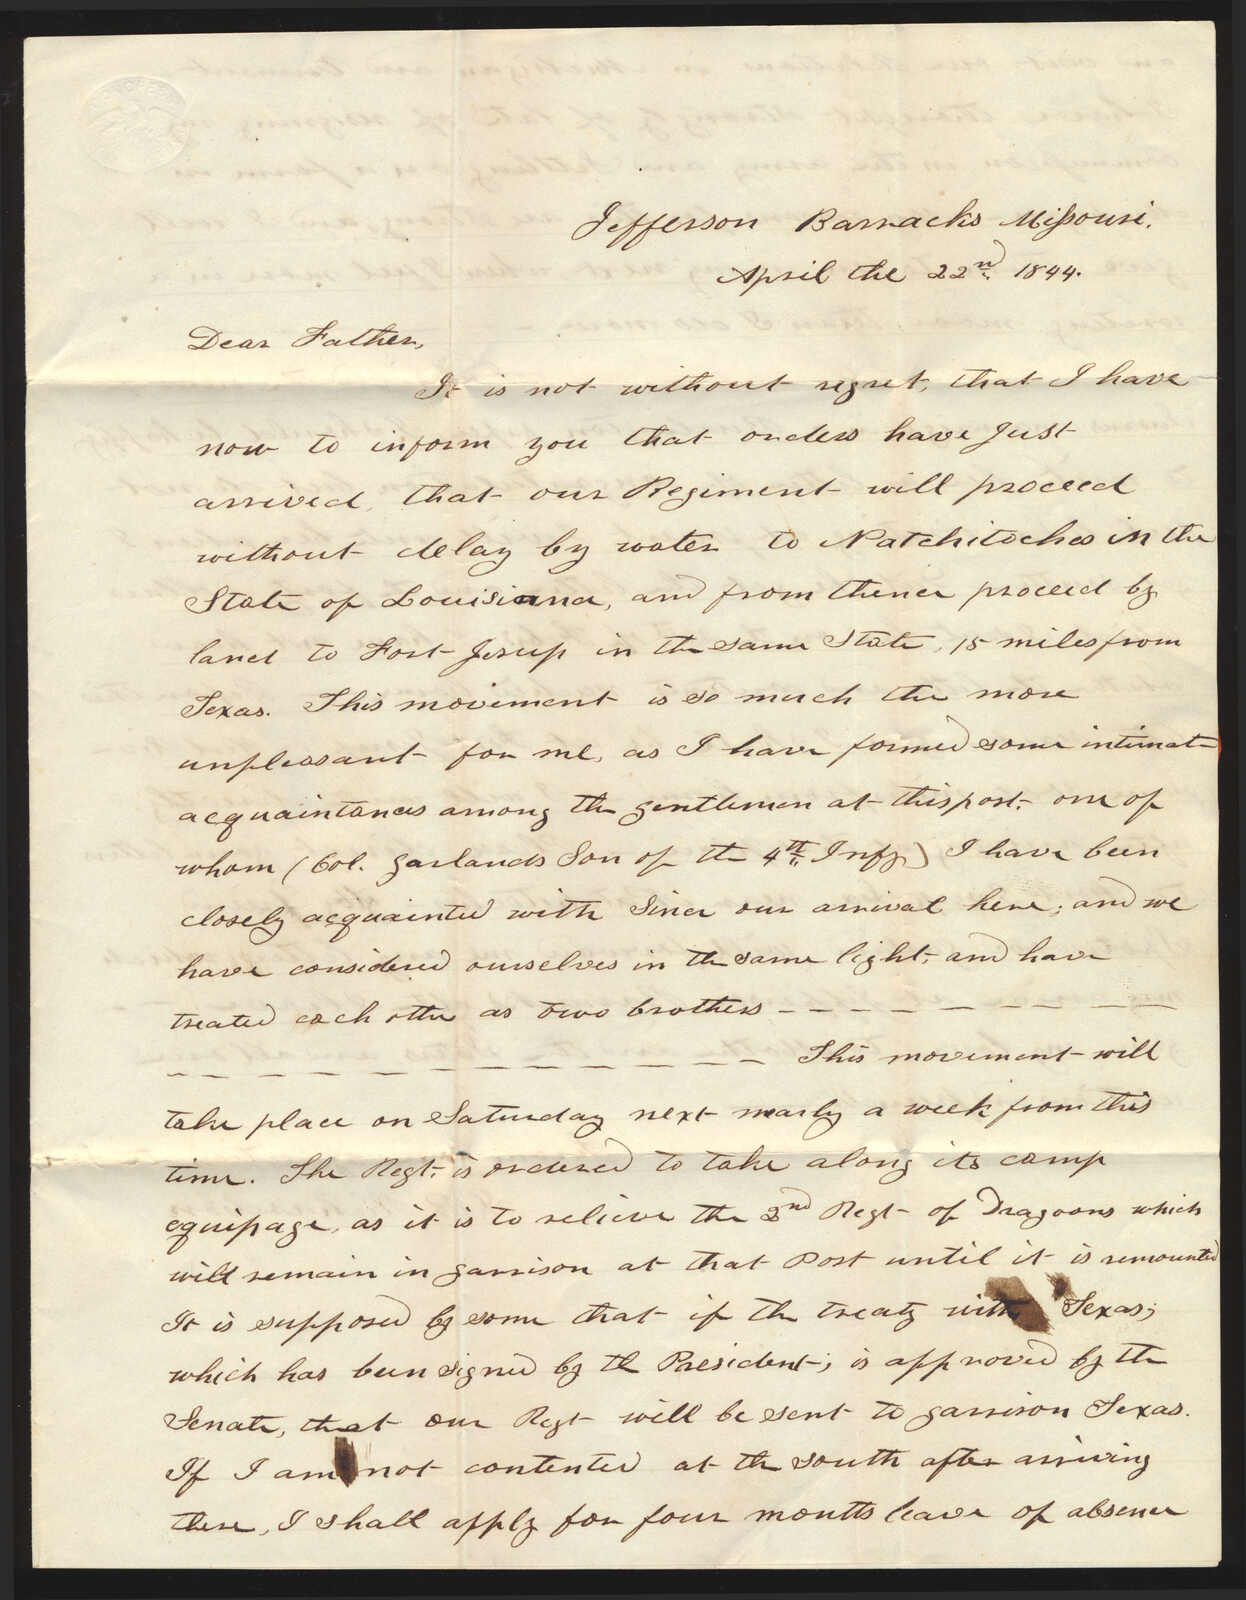 Jefferson Barracks Missouri.
April the 22nd 1844.
Dear Father,
It is not without regret, that I have
now to inform you that orders have just
arrived, that our Regiment will proceed
without delay by water to Natchitoches in the
State of Louisiana, and from thence proceed by
land to Fort Jesup in the same State, 15 miles from
Texas. This movement is so much the more
unpleasant for me, as I have formed some intimate
acquaintances among the gentlemen at this post, one of
whom (Col. Garlands Son of the 4th Infy) I have been
closely acquainted with since our arrival here; and we
have considered ourselves in the same light, and have
treated each other as two brothers — — — — — — — —
— — — — — — — — — — — — — This movement will
take place on Saturday next nearly a week from this
time. The Regt. is ordered to take along its camp
equipage, as it is to relieve the 2nd Regt of Dragoons which
will remain in garrison at that Post until it is remounted
It is supposed by some that if the treaty with Texas;
which has been signed by the President; is approved by the
Senate, that our Regt will be sent to garrison Texas.
If I am not contented at the south after arriving
there, I shall apply for four months leave of absence